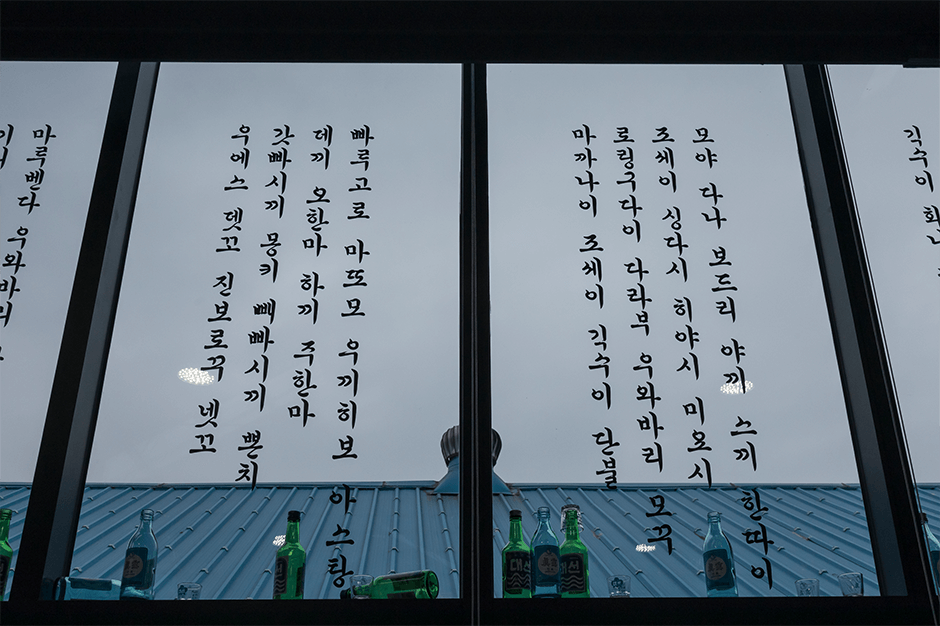 긱수이
모야 다나 보드리 야끼 스끼 한따이
조세이 싱다시 히야시 미요시
로링구다이 다라부 우와바리 모꾸
마까나이 조세이 긱수이 단불
빠루고로 마또모 우끼히보 아스탕
데끼 오한마 하끼 주한마
갓빠시끼 몽키 빼빠시끼 뽄치
우에스 뎃꼬 진보로꾸 넷꼬
마루벤다 우와바리
대선
대선